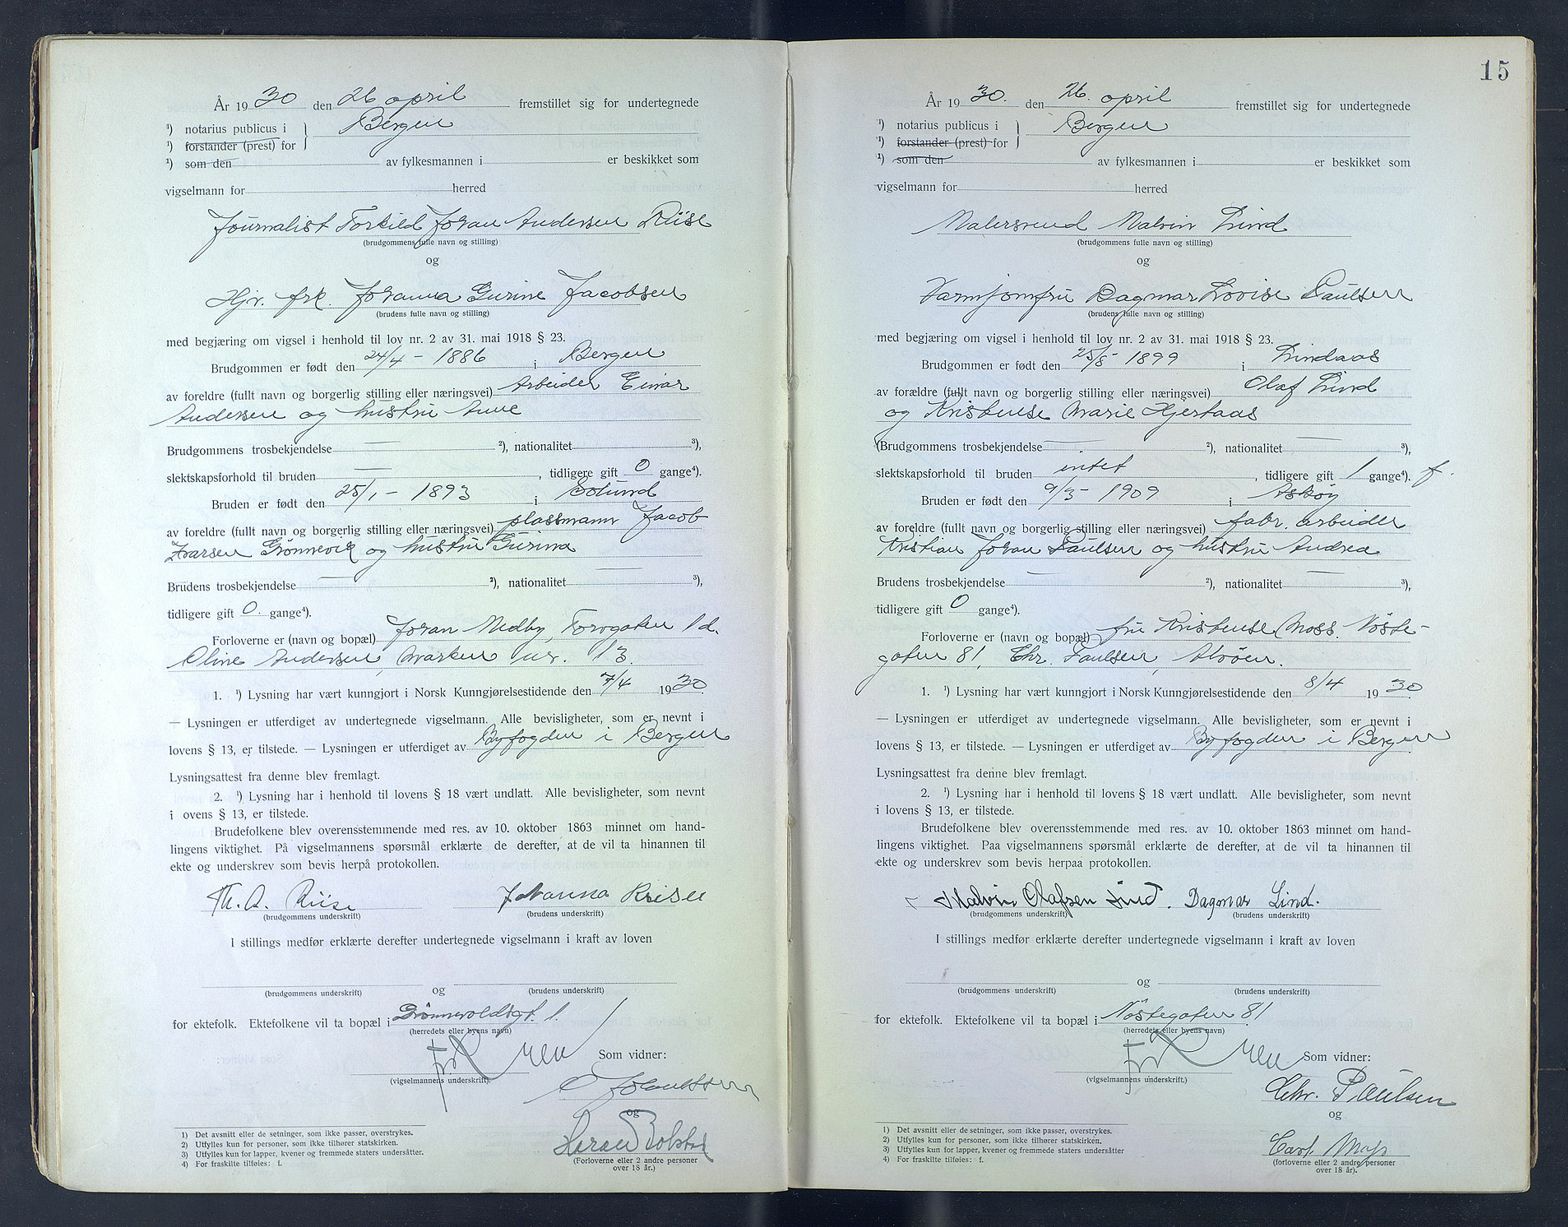 År 1930 den 26 april fremstillet sig for undertegnede
¹) notarius publicus i } Bergen
¹) forstander (prest) for
¹) som den av fylkesmannen i er beskikket som
vigselmann for herred
Journalist Torkild Johan Andersen Riise
(brudgommens fulle navn og stilling)
og
Hjv. frk. Johanna Gurine Jacobsen
(brudens fulle navn og stilling)
med begjæring om vigsel i henhold til lov nr. 2 av 31. mai 1918 § 23.
Brudgommen er født den 24/4 - 1886 i Bergen
av foreldre (fullt navn og borgerlig stilling eller næringsvei) Arbeider Einar
Andersen og hustru Anne
Brudgommens trosbekjendelse — ²), nationalitet ³),
slektskapsforhold til bruden — , tidligere gift 0 gange⁴).
Bruden er født den 25/1 - 1893 i Solund
av foreldre (fullt navn og borgerlig stilling eller næringsvei) plassmann Jacob
Ivarsen Grønnevik og hustru Gurina
Brudens trosbekjendelse — ²), nationalitet — ³),
tidligere gift 0 gange⁴).
Forloverne er (navn og bopæl) Johan Medby, Torvgaten 1 d.
Oline Andersen, Marken nr. 13.
1. ¹) Lysning har vært kunngjort i Norsk Kunngjørelsestidende den 7/4 1930
— Lysningen er utferdiget av undertegnede vigselmann. Alle bevisligheter, som er nevnt i
lovens § 13, er tilstede. — Lysningen er utferdiget av Byfogden i Bergen
Lysningsattest fra denne blev fremlagt.
2. ¹) Lysning har i henhold til lovens § 18 vært undlatt. Alle bevisligheter, som nevnt
i ovens § 13, er tilstede.
Brudefolkene blev overensstemmende med res. av 10. oktober 1863 minnet om hand-
lingens viktighet. På vigselmannens spørsmål erklærte de derefter, at de vil ta hinannen til
ekte og underskrev som bevis herpå protokollen.
Th. A. Riise Johanna Riise
(brudgommens underskrift) (brudens underskrift)
I stillings medfør erklærte derefter undertegnede vigselmann i kraft av loven
og
(brudgommens underskrift) (brudens underskrift)
for ektefolk. Ektefolkene vil ta bopæl i Grønnevoldsgt. 1.
(herredets eller byens navn)
Som vidner:
(vigselmannens underskrift.)
og
(Forloverne eller 2 andre personer
over 18 år.)
1) Det avsnitt eller de setninger, som ikke passer, overstrykes.
2) Utfylles kun for personer, som ikke tilhører statskirken.
3) Utfylles kun for lapper, kvener og fremmede staters undersåtter.
4) For fraskilte tilføies: f.
15
År 1930. den 26. april fremstillet sig for undertegnede
¹) notarius publicus i } Bergen
¹) forstander (prest) for
¹) som den av fylkesmannen i er beskikket som
vigselmann for herred
Malersvend Malvin Lind
(brudgommens fulle navn og stilling)
og
Varmjomfru Dagmar Lovise Paulsen
(brudens fulle navn og stilling)
med begjæring om vigsel i henhold til lov nr. 2 av 31. mai 1918 § 23.
Brudgommen er født den 25/5 1899 i Lindaas
av forældre (fullt navn og borgerlig stilling eller næringsvei) Olaf Lind
og Kristense Marie Hjertaas
(Brudgommens trosbekjendelse — ²), nationalitet — ³),
slektskapsforhold til bruden intet , tidligere gift 1 gange⁴) f.
Bruden er født den 9/3 - 1909 i Askøy
av foreldre (fullt navn og borgerlig stilling eller næringsvei) fabr. arbeider
Kristian Johan Paulsen og hustru Andrea
Brudens trosbekjendelse ²), nationalitet ³),
tidligere gift 0 gange⁴).
Forloverne er (navn og bopæl) fru Kristense Moss, Nøste-
gaten 81, Chr. Paulsen, Alvøen.
1. ¹) Lysning har vært kunngjort i Norsk Kunngjørelsestidende den 8/4 1930
— Lysningen er utferdiget av undertegnede vigselmann. Alle bevisligheter, som er nevnt i
lovens § 13, er tilstede. — Lysningen er utferdiget av Byfogden i Bergen
Lysningsattest fra denne blev fremlagt.
2. ¹) Lysning har i henhold til lovens § 18 vært undlatt. Alle bevisligheter, som nevnt
i lovens § 13, er tilstede.
Brudefolkene blev overensstemmende med res. av 10. oktober 1863 minnet om hand-
lingens viktighet. Paa vigselmannens spørsmål erklærte de derefter, at de vil ta hinannen til
ekte og underskrev som bevis herpaa protokollen.
Malvin Olafsen Lind. Dagmar Lind.
(brudgommens underskrift) (brudens underskrift)
I stillings medfør erklærte derefter undertegnede vigselmann i kraft av loven
og
(brudgommens underskrift) (brudens underskrift)
for ektefolk. Ektefolkene vil ta bopæl i Nøstegaten 81
(herredets eller byens navn)
Som vidner:
(vigselmannens underskrift.)
Chr. Paulsen
og
(forloverne eller 2 andre personer
over 18 år.)
1) Det avsnitt eller de setninger, som ikke passer, overstrykes.
2) Utfylles kun for personer, som ikke tilhører statskirken.
3) Utfylles kun for lapper, kvener og fremmede staters undersåtter
4) For fraskilte tilføies: f.